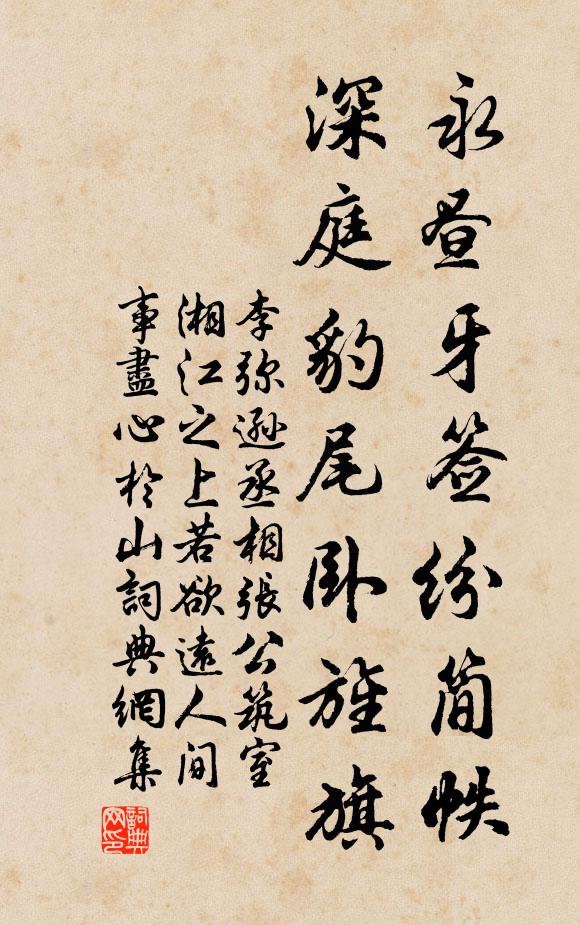 永昼牙签纷简帙
深庭豹尾卧旌旗
李弥遜丞相張公筑室
湘江之上若欲遠人间
事盡心於山詞典網集
詞典网印